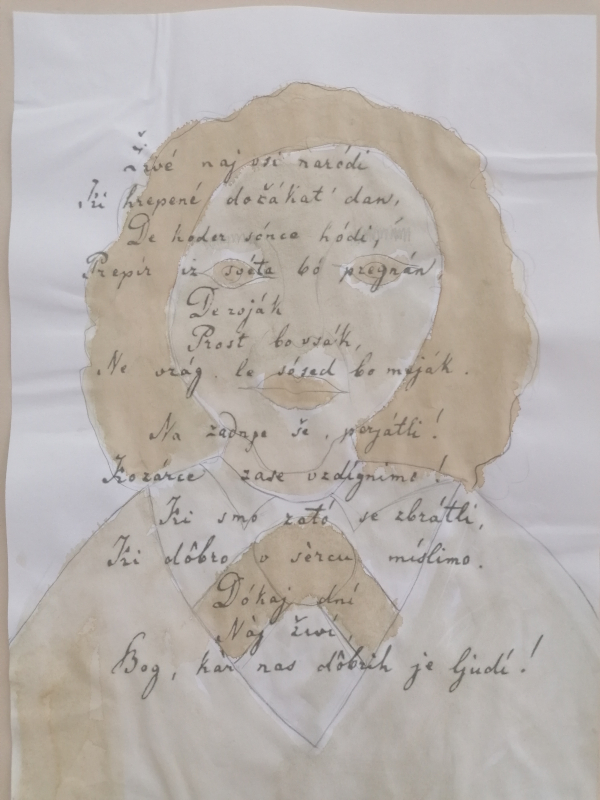 Živé naj vsi naródi
Ki hrepené dočákat' dan,
De koder sónce hódi,
Prepír iz svéta bó pregnán,
De roják
Prost bo vsák,
Ne vrág, le sósed bo meják.
Na zadnje še, perjátli!
Kozárce zase vzdígnimo!
Ki smo zató se zbrátli,
Ki dôbro v sèrcu míslimo.
Dókaj dní
Nàj živí
Bog, kàr nas dôbrih je ljudí!